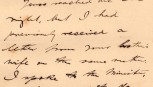 night, but I had
previously received a
letter from your
wife on the same matter.
I spoke to the Minister,